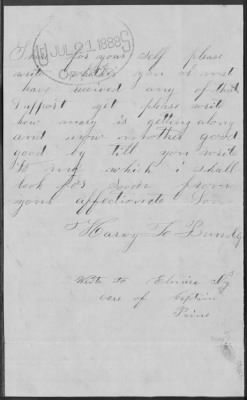 JUL 21 1888
for your self please
write whether you or not
have received any of that
support yet please write
how mary is getting along
and now mother good
good by till you write
to me which i shall
look for soon from
your affectionate Son
Harvy
Write to Elmira NY
care of Captain